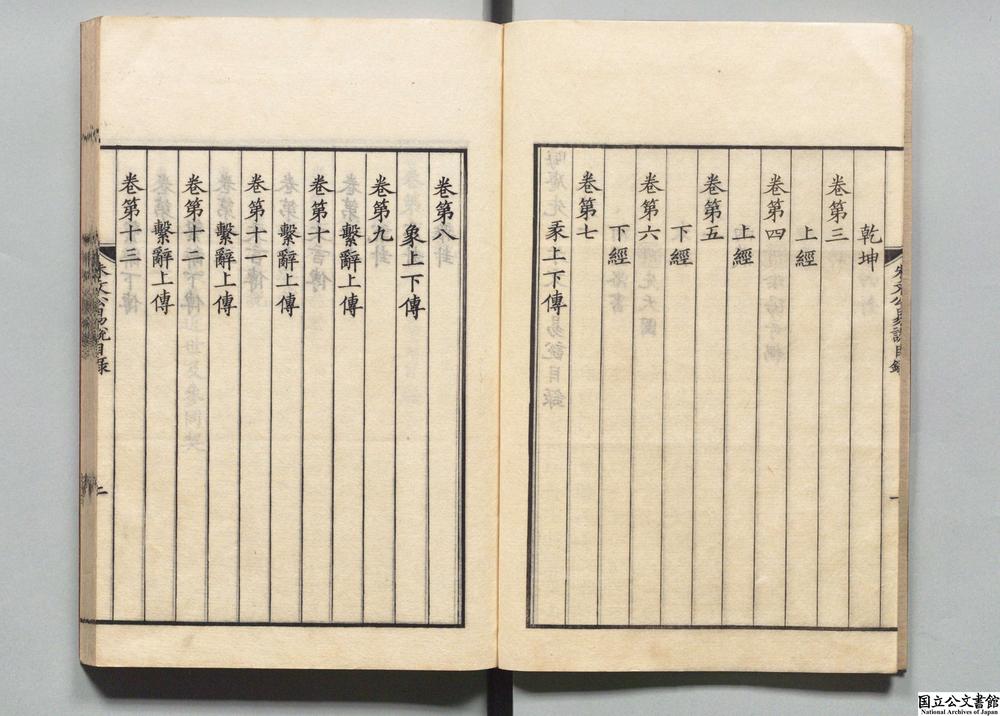 乾坤
卷第三
上經
卷第四
上經
卷第五
下經
卷第六
下經
卷第七
彖上下傳
朱文公易說目錄
一
卷第八
象上下傳
卷第九
繫辭上傳
卷第十
繫辭上傳
卷第十一
繫辭上傳
卷第十二
繫辭上傳
卷第十三
朱文公易說目錄
二
国立公文書館
National Archives of Japan